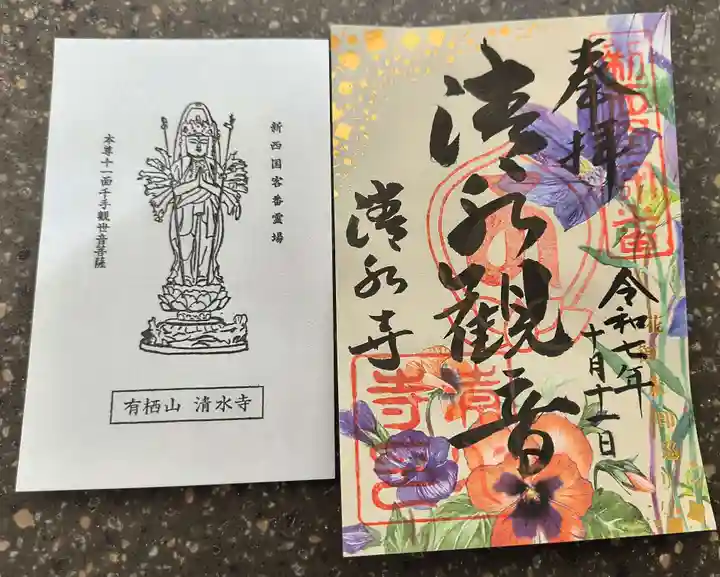 新西国客番霊場
本尊十一面千手観世音菩薩
有栖山 清水寺
奉拝
清水観音
清水寺
令和七年
十月十一日